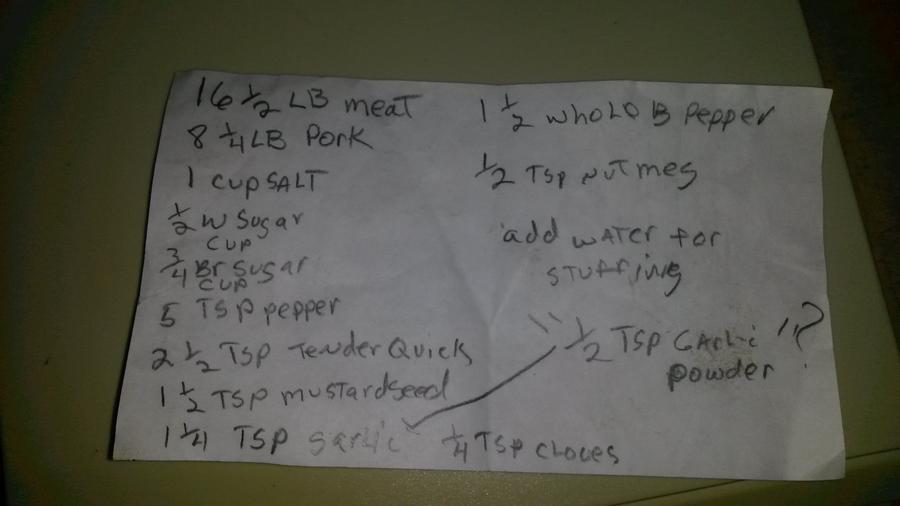 16 1/2 LB meat
8 1/4 LB Pork
1 cup SALT
1/2 W Sugar
CUP
3/4 Br Sugar
CUP
5 TSP pepper
2 1/2 TSP Tender Quick
1 1/2 TSP mustardseed
1 1/4 TSP garlic
1/4 TSP cloves
1 1/2 whole B Pepper
1/2 Tsp nutmeg
add water for
stuffing
" 1/2 TSP Garlic "?
powder